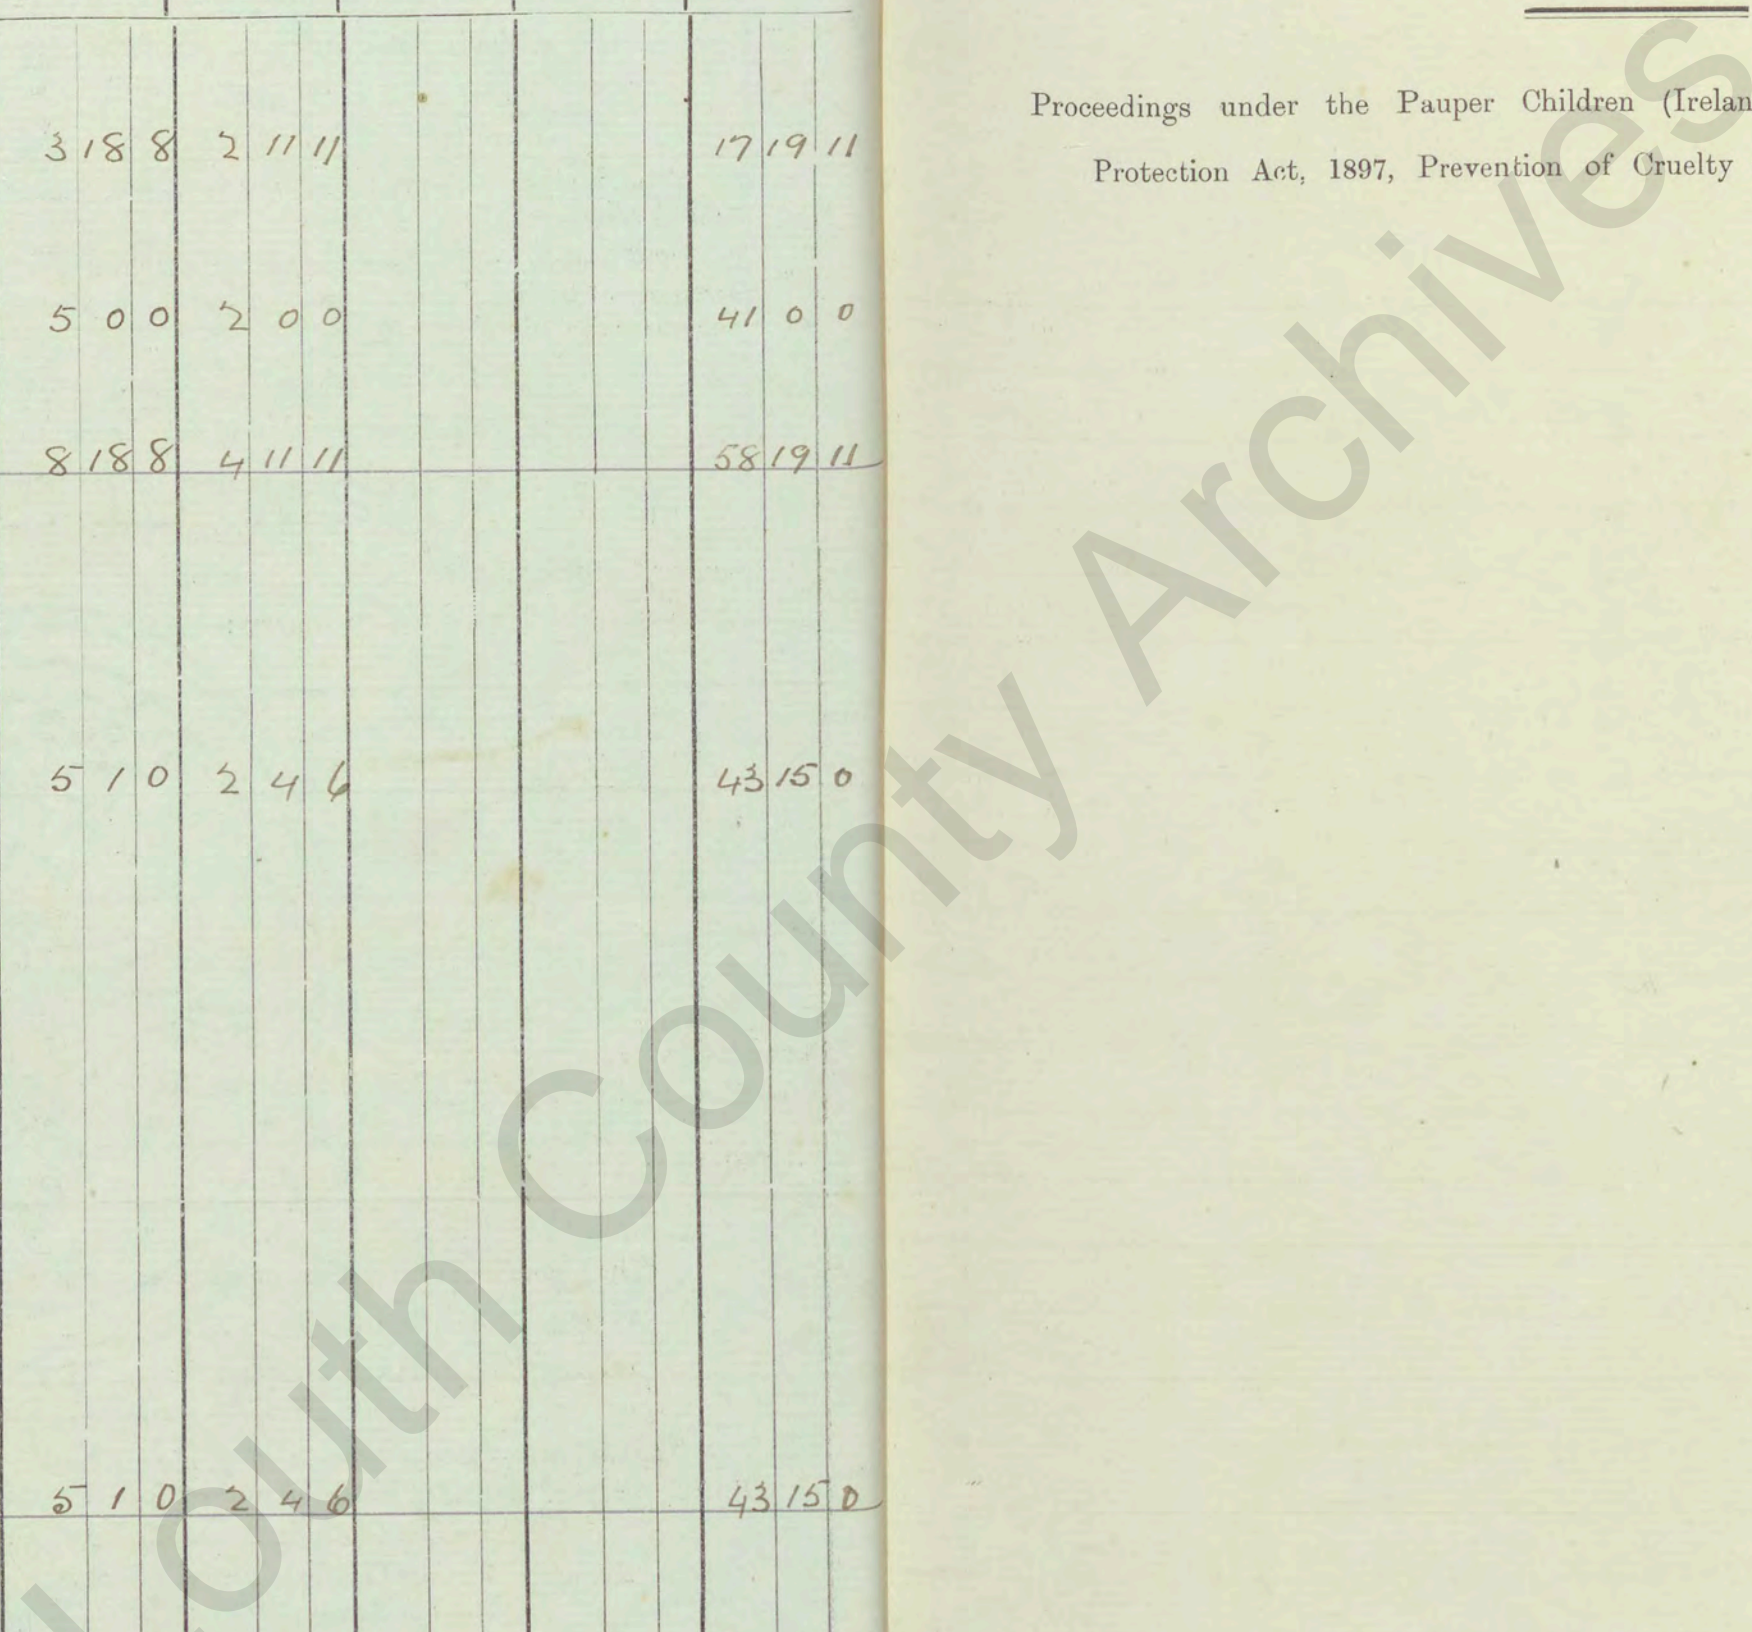 3 18 8 2 11 11 17 19 11
5 0 0 2 0 0 41 0 0
8 18 8 4 11 11 58 19 11
5 1 0 2 4 6 43 15 0
5 1 0 2 4 6 43 15 0
Proceedings under the Pauper Children (Irelan
Protection Act, 1897, Prevention of Cruelty
Louth County Archives